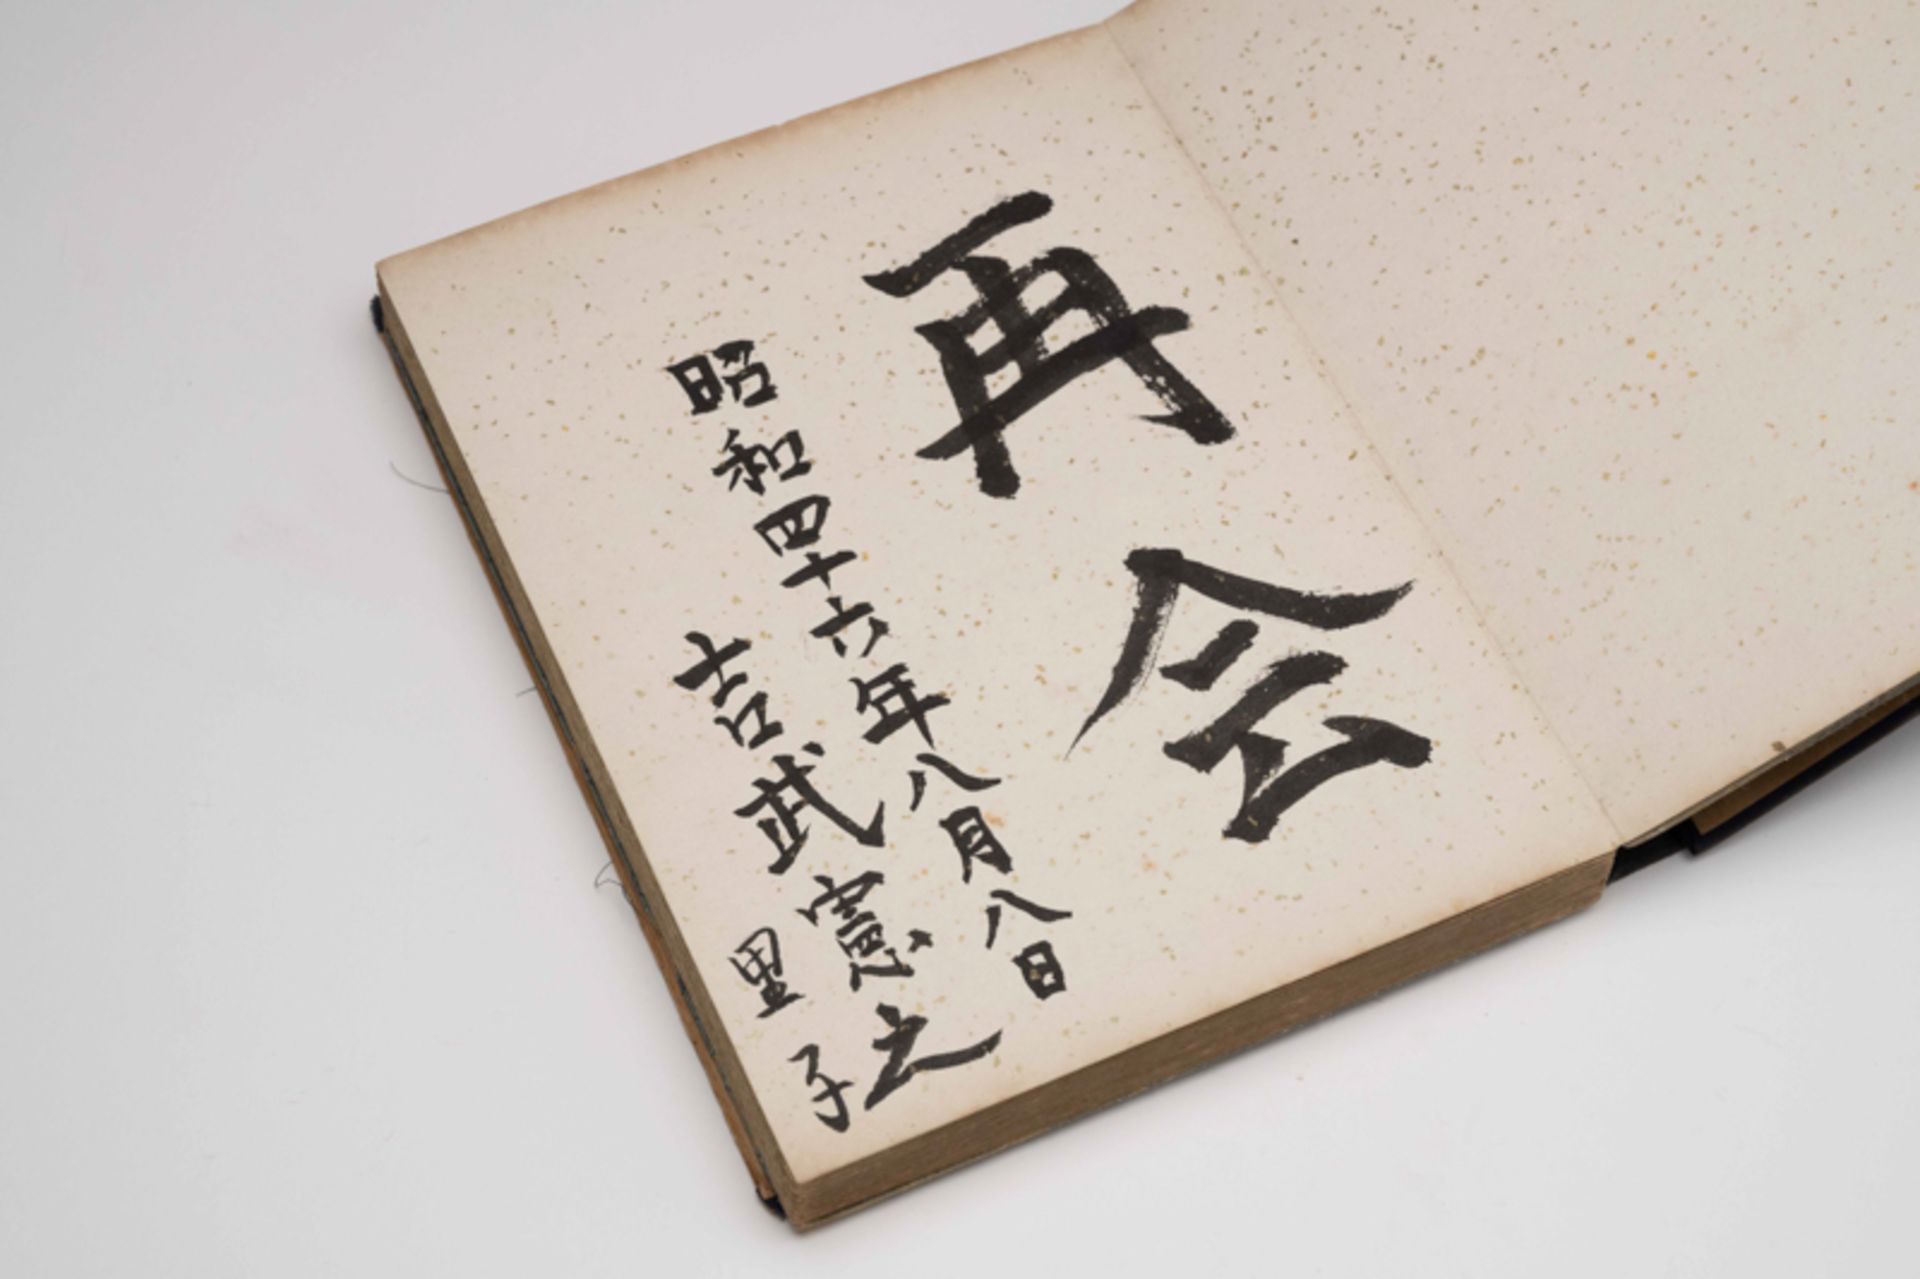 再会
昭和四十六年八月八日
吉武憲之
里子